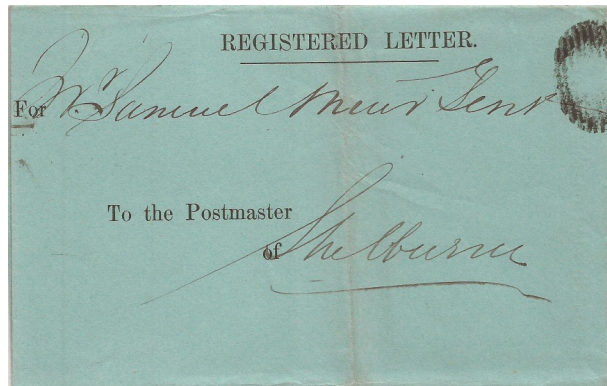 REGISTERED LETTER.
For W. Samuel Muir Gent
To the Postmaster
of Shelburne